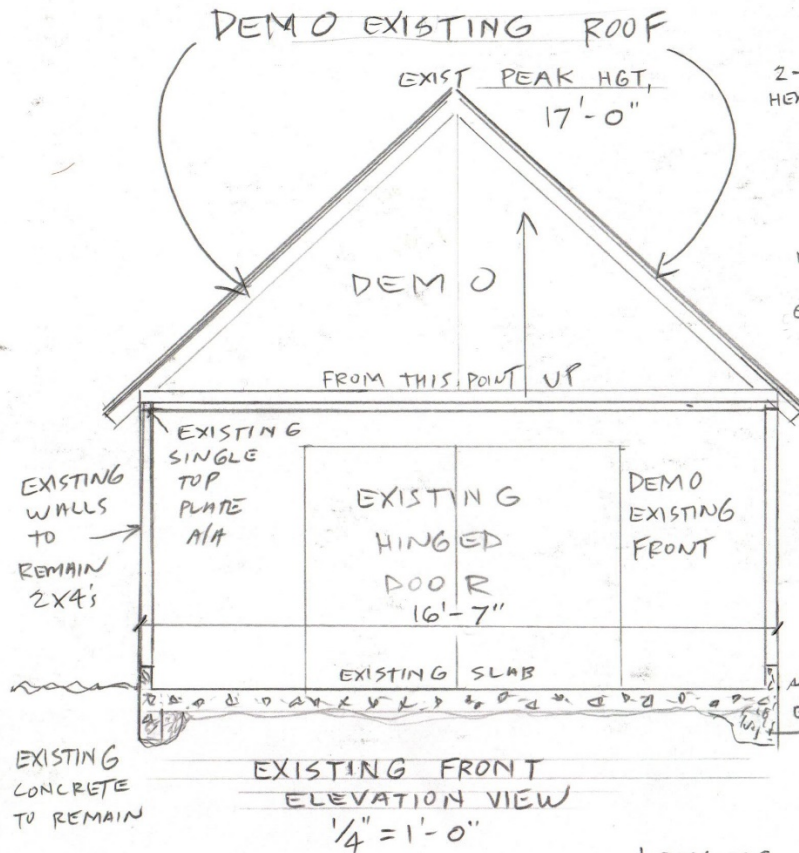 DEMO EXISTING ROOF
EXIST PEAK HGT,
17'-0"
2-
HEX
DEMO
FROM THIS POINT UP
EXISTING
SINGLE
TOP
PLATE
A/A
EXISTING
WALLS
TO
REMAIN
2X4's
EXISTING
HINGED
DOOR
16'-7"
DEMO
EXISTING
FRONT
EXISTING SLAB
EXISTING
CONCRETE
TO REMAIN
EXISTING FRONT
ELEVATION VIEW
1/4" = 1'-0"